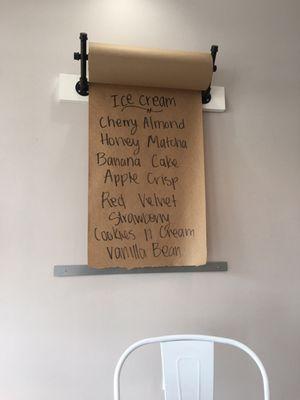 Ice cream
Cherry Almond
Honey Matcha
Banana Cake
Apple Crisp
Red Velvet
Strawberry
Cookies N Cream
Vanilla Bean